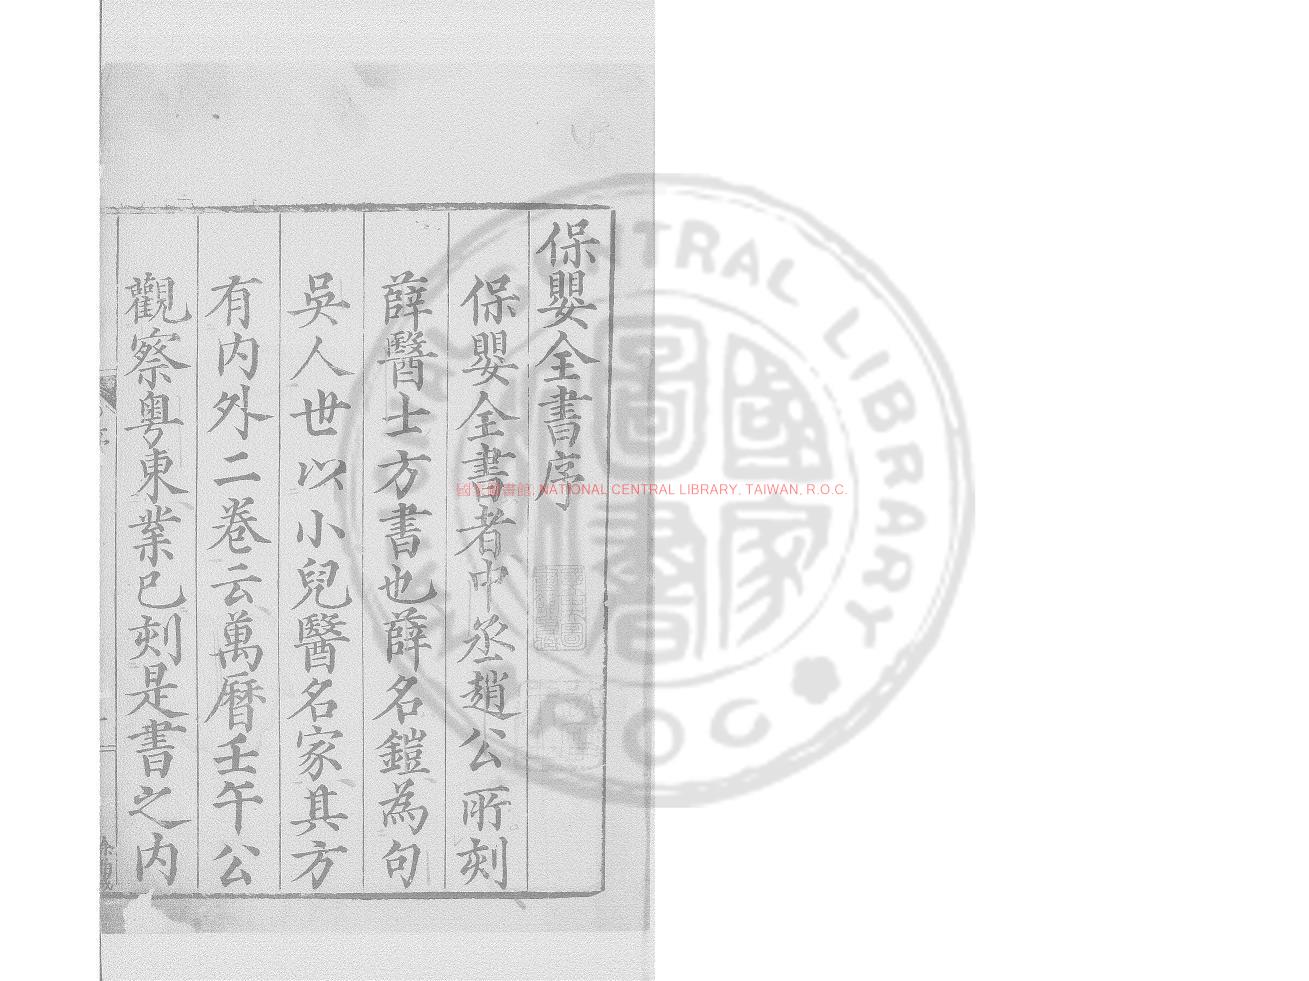 保嬰全書序
保嬰全書者中丞趙公所刻
薛醫士方書也薛名鎧為句
吳人世以小兒醫名家其方
有内外二卷云萬曆壬午公
觀察粵東業已刻是書之内
國家圖書館, NATIONAL CENTRAL LIBRARY, TAIWAN, R.O.C.
CENTRAL LIBRARY
R.O.C.
國家圖書館